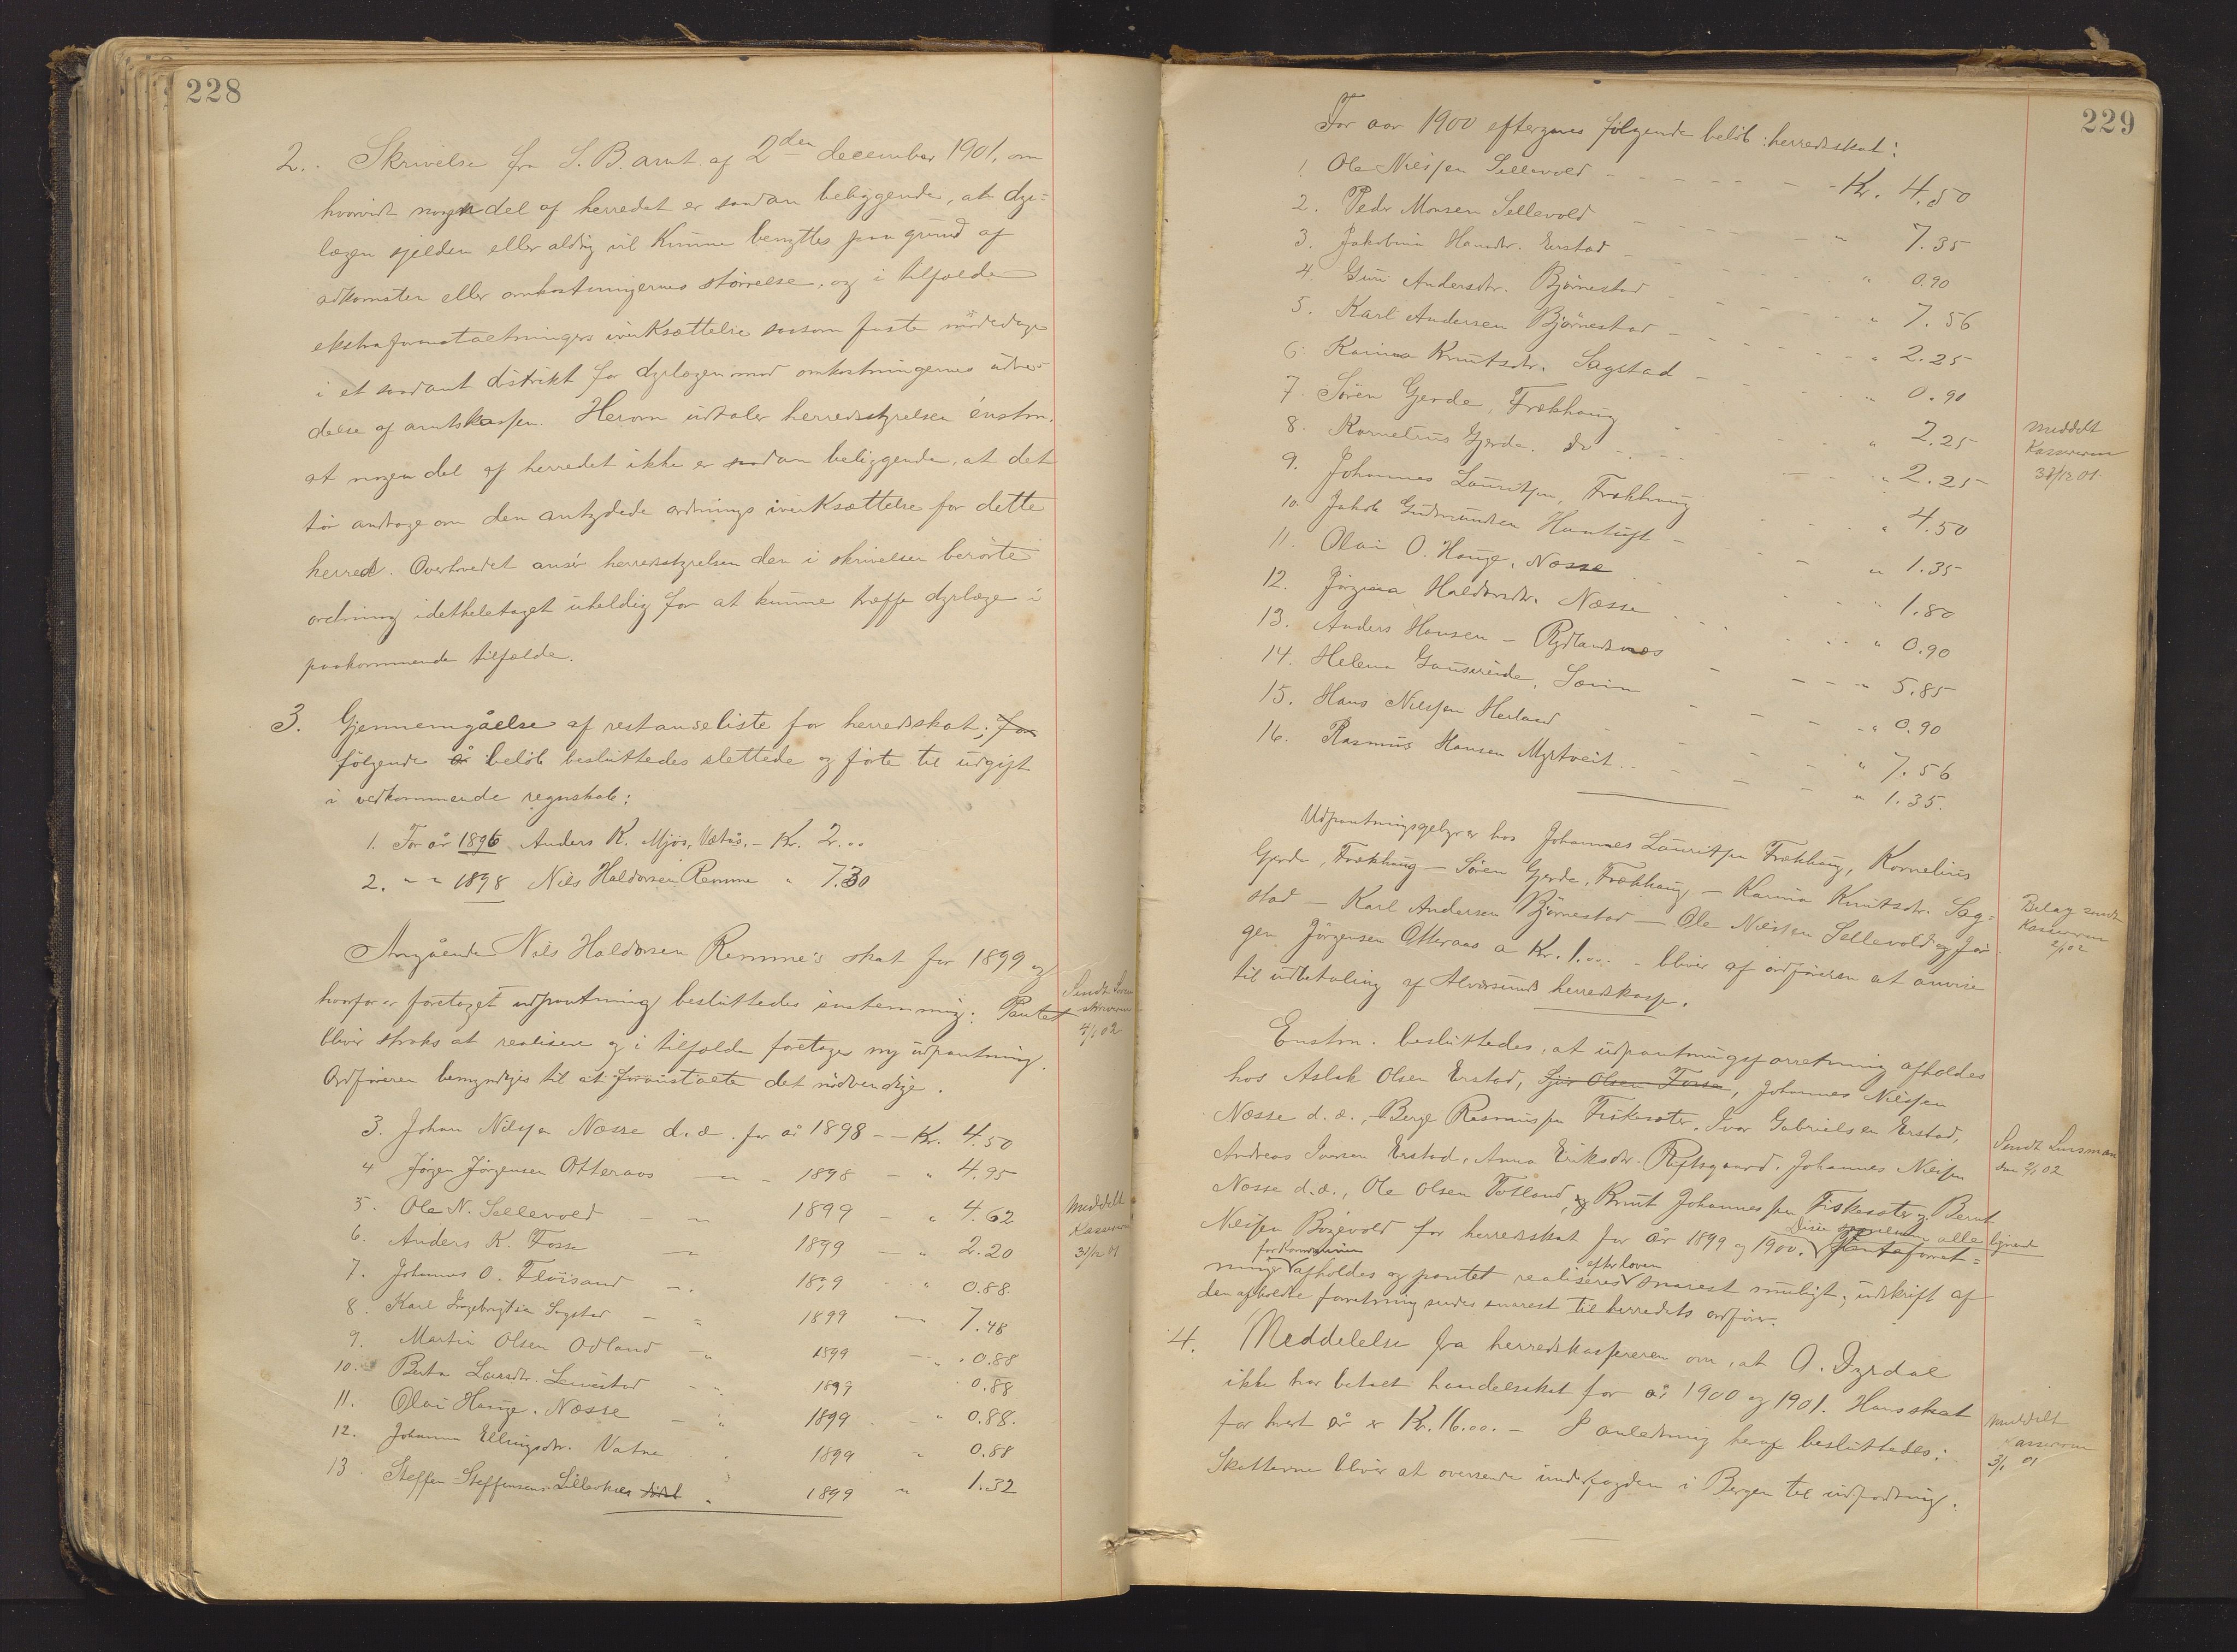 228
2. Skrivelse fra S. B. amt af 2den december 1901, om
hvorvidt nogen del af herredet er saadan beliggende, at dyr-
lægen sjelden eller aldrig vil kunne benyttes paa grund af
adkomsten eller omkostningernes størrelse, og i tilfælde
ekstraforanstaltningers iverksættelse saasom faste mødedage
i et saadant distrikt for dyrlægen mod omkostningernes udre-
delse af amtskassen. Herom udtaler herredsstyrelsen énstm.
at nogen del af herredet ikke er saadan beliggende, at det
tør andrage om den antydede ordnings iverksættelse for dette
herred. Overhovedet anser herredsstyrelsen den i skrivelsen berørte
ordning idetheletaget uheldig for at kunne træffe dyrlæge i
paakommende tilfælde.
3. Gjennemgåelse af restanseliste for herredsskat; for
følgende år beløb besluttedes slettede og førte til udgift
i vedkommende regnskab:
1. For år 1896 Anders K. Mjøs, Vetås. – Kr. 2...
2. " " 1898 Nils Haldorsen Remme " 7.30
Angående Nils Haldorsen Remme's skat for 1899 og
hvorfor er foretaget udpantning besluttedes enstemmig: Pantet
bliver straks at realisere og i tilfælde foretages ny udpantning.
Ordføreren bemyndiges til at foranstalte det nødvendige.
Sendt
4/1 02
3. Johan Nilsen Næsse d.æ. for år 1898 -- Kr. 4.50
4 Jørgen Jørgensen Otteraas — " - 1898 — " 4.95
5. Ole N. Sellevold — " 1899 — " 4.62
6. Anders K. Fosse — " 1899 — " 2.20
7. Johannes O. Fløisand — " 1899 " 0.88.
8. Karl Ingebrigtsen Sagstad — " 1899 — 7.48
9. Martin Olsen Odland — " 1899 — " 0.88
10. Berta Larsdtr. " 1899 " 0.88
11. Olai Hauge, Næsse — " 1899 — " 0.88.
12. Johanna Ellingsdtr. Vatne " 1899 " 0.88
13. Steffen Steffensen " 1899 " 1.32
Meddelt
Kassereren
31/12 01
229
For aar 1900 eftergives følgende beløb herredsskat:
1. Ole Nielsen Sellevold - - - - - Kr. 4.50
2. Peder Monsen Sellevold - - - " 7.35
3. Jakobina Hansdtr. Erstad - - - " 0.90
4. Guri Andersdtr. Bjørnestad - - - " 7.56
5. Karl Andersen Bjørnestad - - - " 2.25
6. Karina Knutsdtr. Sagstad - - - " 0.90
7. Søren Gjerde, Frækhaug - - - " 2.25
8. Kornelius Gjerde, do - - - " 2.25
9. Johannes Lauritsen, Frækhaug - - - " 4.50
10. Jakob Gudmundsen Hantugt - - - " 1.35
11. Olai O. Hauge, Næsse - - - " 1.80
12. Jørgina Haldorsdtr. Næsse - - - " 0.90
13. Anders Hansen - Rydlandsnæs - - - " 5.85
14. Helena Gausereide, Sæim - - - " 0.90
15. Hans Nielsen Herland - - - " 7.56
16. Rasmus Hansen Myrtveit - - - " 1.35.
Meddelt
Kassereren
31/12 01.
Udpantningsgebyrer hos Johannes Lauritsen Frækhaug, Kornelius
Gjerde, Frækhaug — Søren Gjerde, Frækhaug — Karina Knutsdtr. Sag-
stad — Karl Andersen Bjørnestad — Ole Nielsen Sellevold og Jør-
gen Jørgensen Otteraas a Kr. 1... – bliver af ordføreren at anvise
til udbetaling af Alversunds herredskasse.
Bilag sendt
Kassereren
2/1 02
Enstm. besluttedes, at udpantningsforretning afholdes
hos Aslak Olsen Erstad, Sjur Olsen Fosse, Johannes Nielsen
Næsse d.æ., Berge Rasmussen Fiskesæter, Ivar Gabrielsen Erstad,
Andreas Iversen Erstad, Anna Eriksdtr. Refsgaard, Johannes Nielsen
Næsse d.æ., Ole Olsen Totland, og Knut Johannessen Fiskesæter og Bernt
Nielsen Bøgevold for herredsskat for år 1899 og 1900. Disse alle lignende Panteforret-
ninger for kommunen afholdes og pantet realiseres efter loven snarest muligt, udskrift af
den afholdte forretning sendes snarest til herredets ordfører.
Sendt Lensmanden
den 2/1 02
4. Meddelelse fra herredskassereren om, at O. Dyrdal
ikke har betalt handelsskat for år 1900 og 1901. Hans skat
for hvert år er Kr. 16.00. – I anledning heraf besluttedes:
Skatterne bliver at oversende underfogden i Bergen til udpantning.
Meddelt
Kassereren